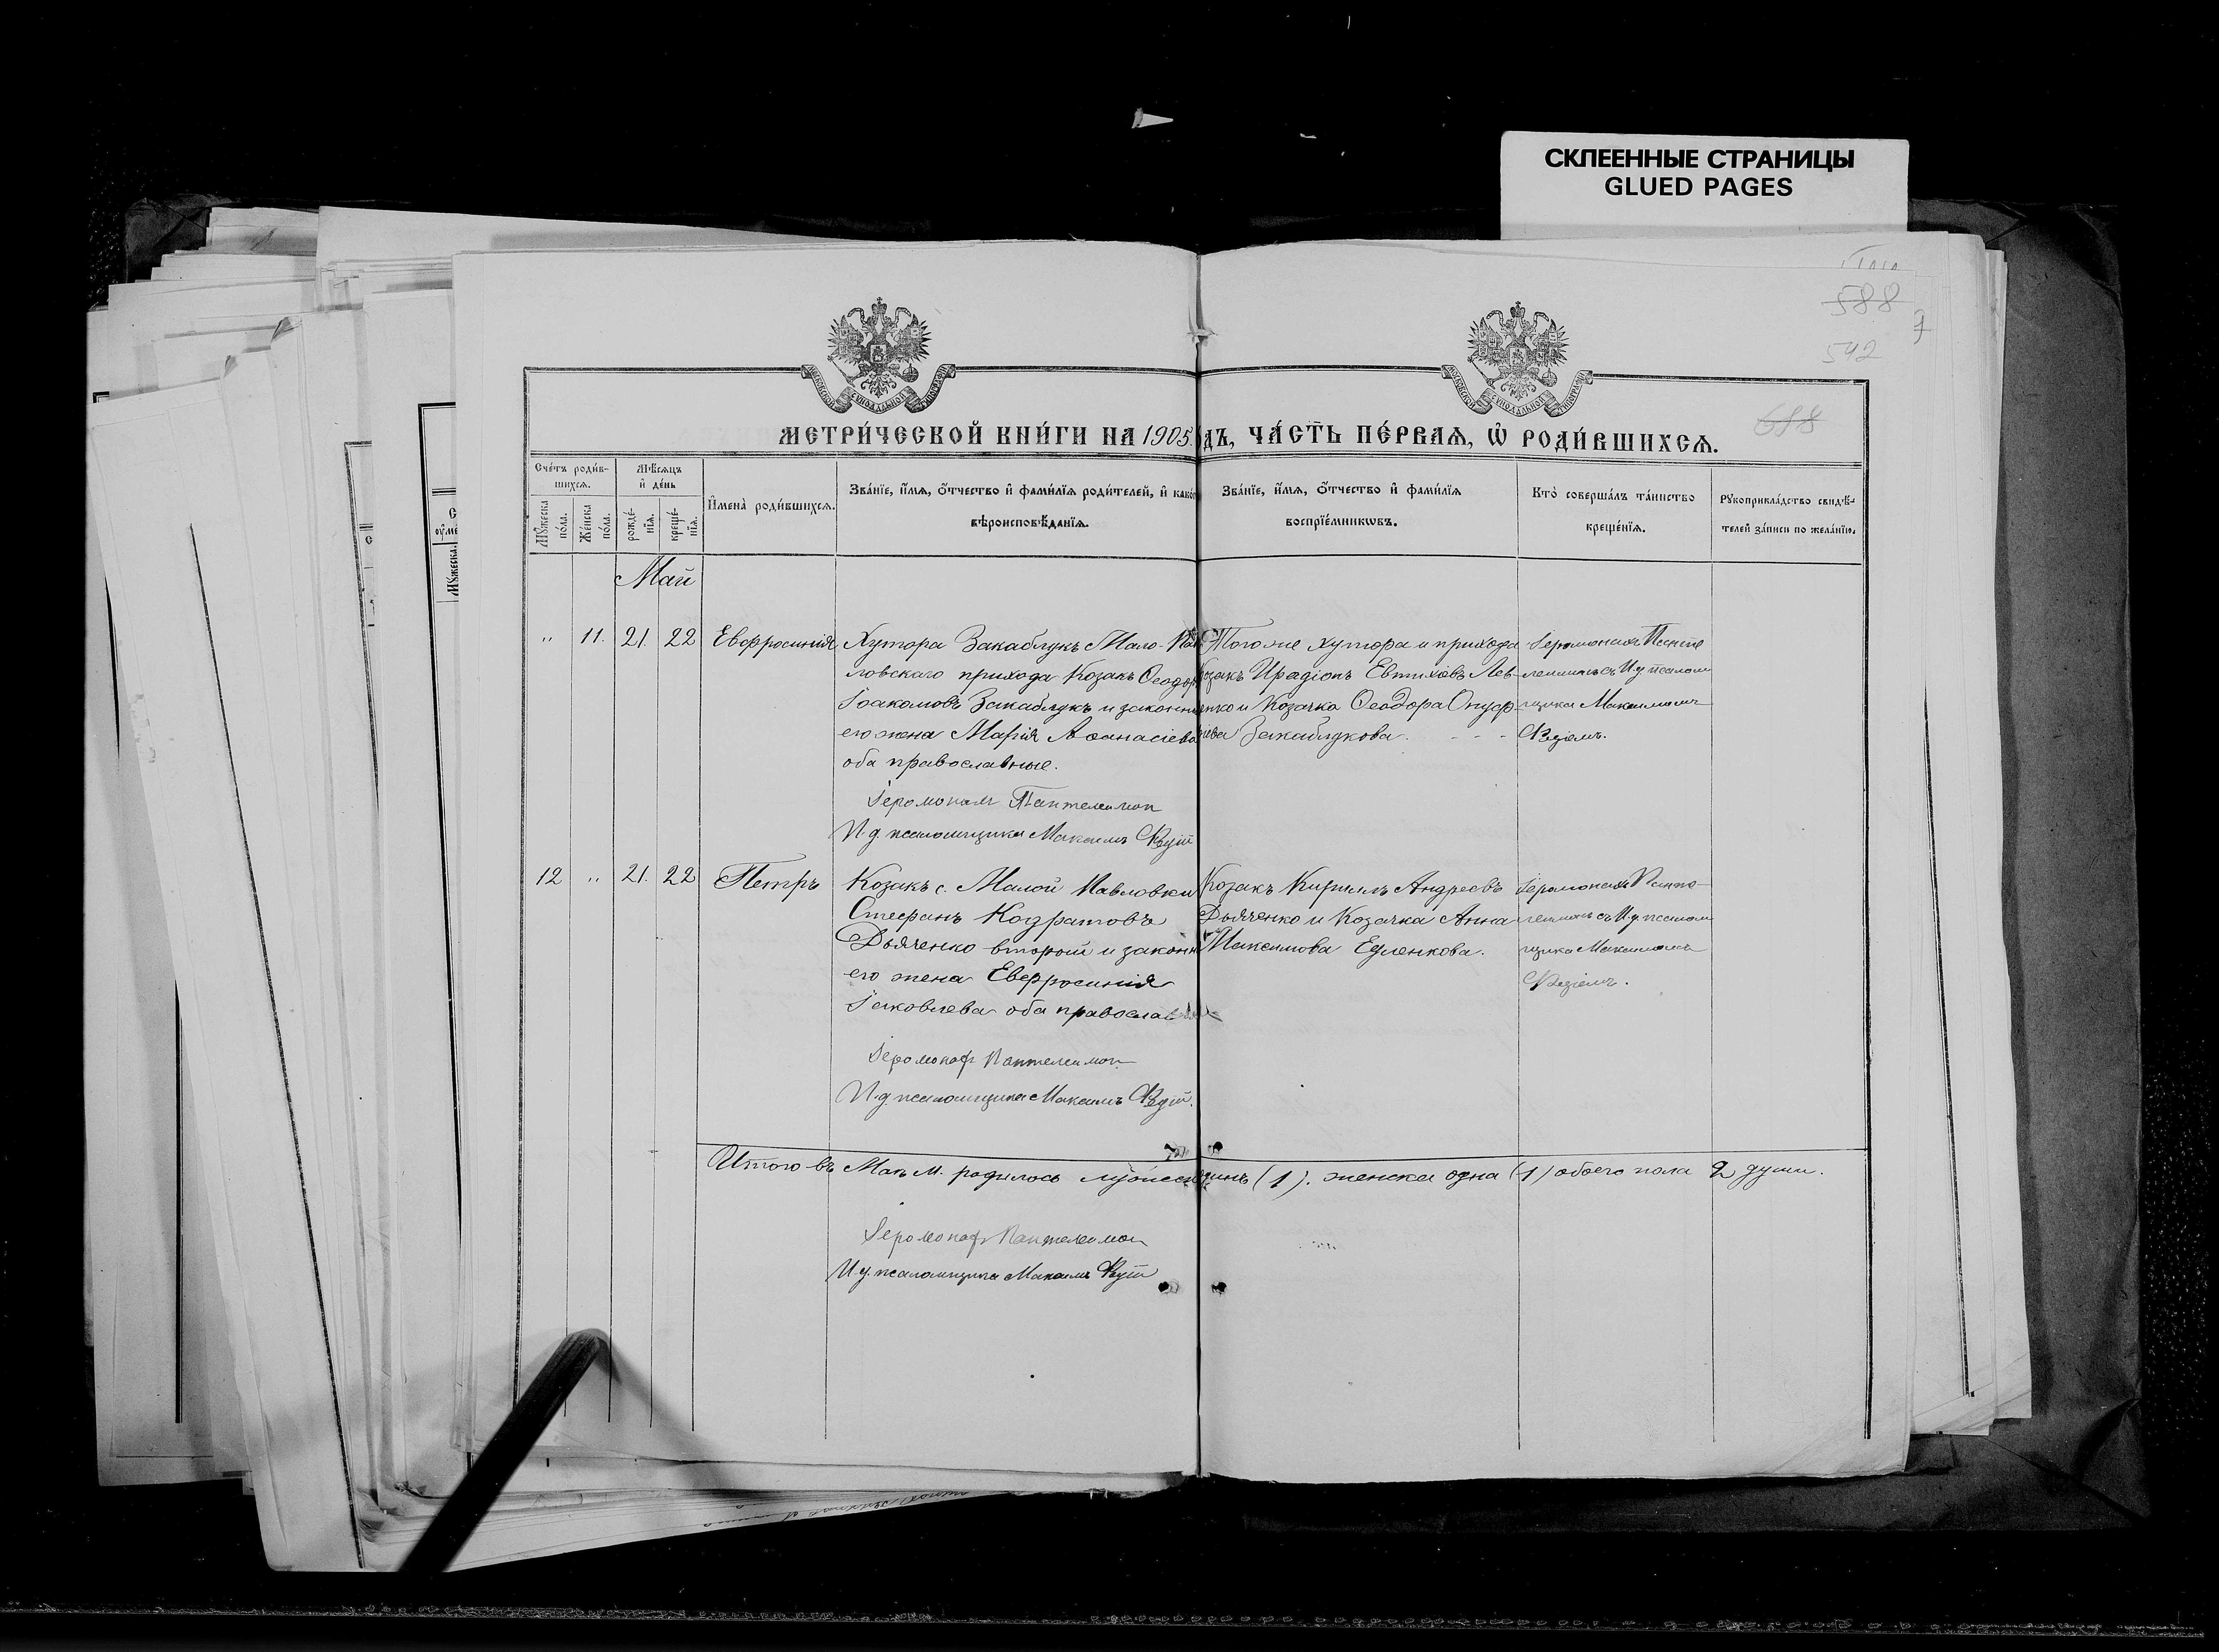 СКЛЕЕННЫЕ СТРАНИЦЫ
GLUED PAGES
588
542
688
МЕТРИ́ЧЕСКОЙ КНИ́ГИ НА 1905 дъ, ЧА́СТЬ ПЕ́РВАЯ, Ѡ҆ РОДИ́ВШИХСѦ.
Сче́тъ роди́вшихсѧ.
Мѣ́сѧцъ и҆ де́нь
Мꙋ́жеска по́ла.
Же́нска по́ла.
рожде́нїѧ.
креще́нїѧ.
И҆мена̀ роди́вшихсѧ.
Зва́нїе, и҆́мѧ, ѻ҆́тчество и҆ фами́лїѧ роди́телей, и҆ како́г
вѣроисповѣ́данїѧ.
Зва́нїе, и҆́мѧ, ѻ҆́тчество и҆ фами́лїѧ
воспрїе́мникѡвъ.
Кто̀ соверша́лъ та́инство
креще́нїѧ.
Рꙋкоприкла́дство свидѣ́-
телей за́писи по жела́нїю.
Май
" 11. 21. 22 Евфросинія
Хутора Закаблукъ Мало-Пав
ловскаго прихода Козакъ Ѳеодоръ
Іоакимовъ Закаблукъ и законная
его жена Марія Аѳанасіева
оба православные.
Іеромонахъ Пантелеимон
И. д. псаломщика Максимъ
Того же хутора и прихода
Козакъ Иродіонъ Евтихіевъ Лев-
енко и Козачка Ѳеодора Онуфр-
іева Закаблукова.
Іеромонахъ Панте
леимонъ съ И. д. псалом
щика Максимомъ
12 " 21. 22 Петръ
Козакъ с. Малой Павловки
Стефанъ Кодратовъ
Дьяченко второй и законн
его жена Евфросинія
Іаковлева оба православ
Іеромонах Пантелеимон
И. д. псаломщика Максимъ
Козакъ Кириллъ Андреевъ
Дьяченко и Козачка Анна
Максимова Еуленкова.
Іеромонахъ Панте-
леимонъ съ И. д. псалом
щика Максимомъ
Итого въ Маѣ м. родилось мужеска одинъ (1). женска одна (1) обоего пола 2 души.
Іеромонах Пантелеимон
И. д. псаломщика Максимъ